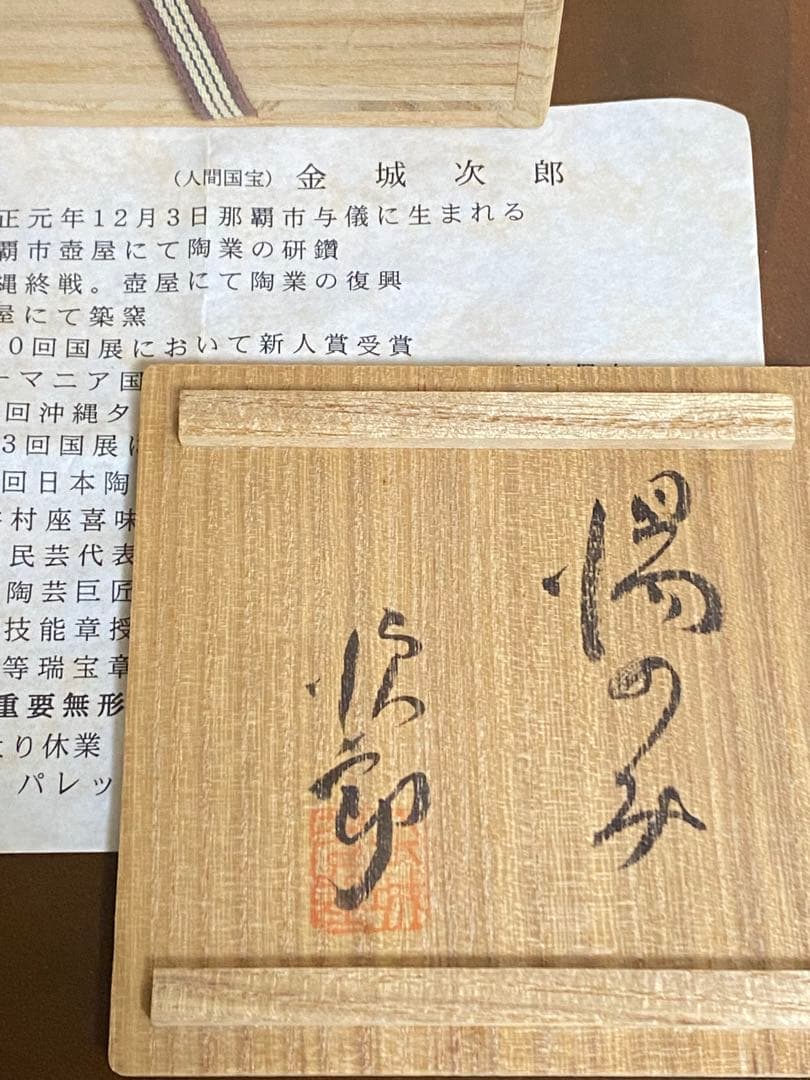 (人間国宝) 金城次郎
正元年12月3日那覇市与儀に生まれる
覇市壺屋にて陶業の研鑽
縄終戦。壺屋にて陶業の復興
屋にて築窯
0回国展において新人賞受賞
ーマニア国
回沖縄タ
3回国展に
回日本陶
村座喜味
民芸代表
陶芸巨匠
技能章授
等瑞宝章
重要無形
より休業
パレッ
湯のみ
次郎